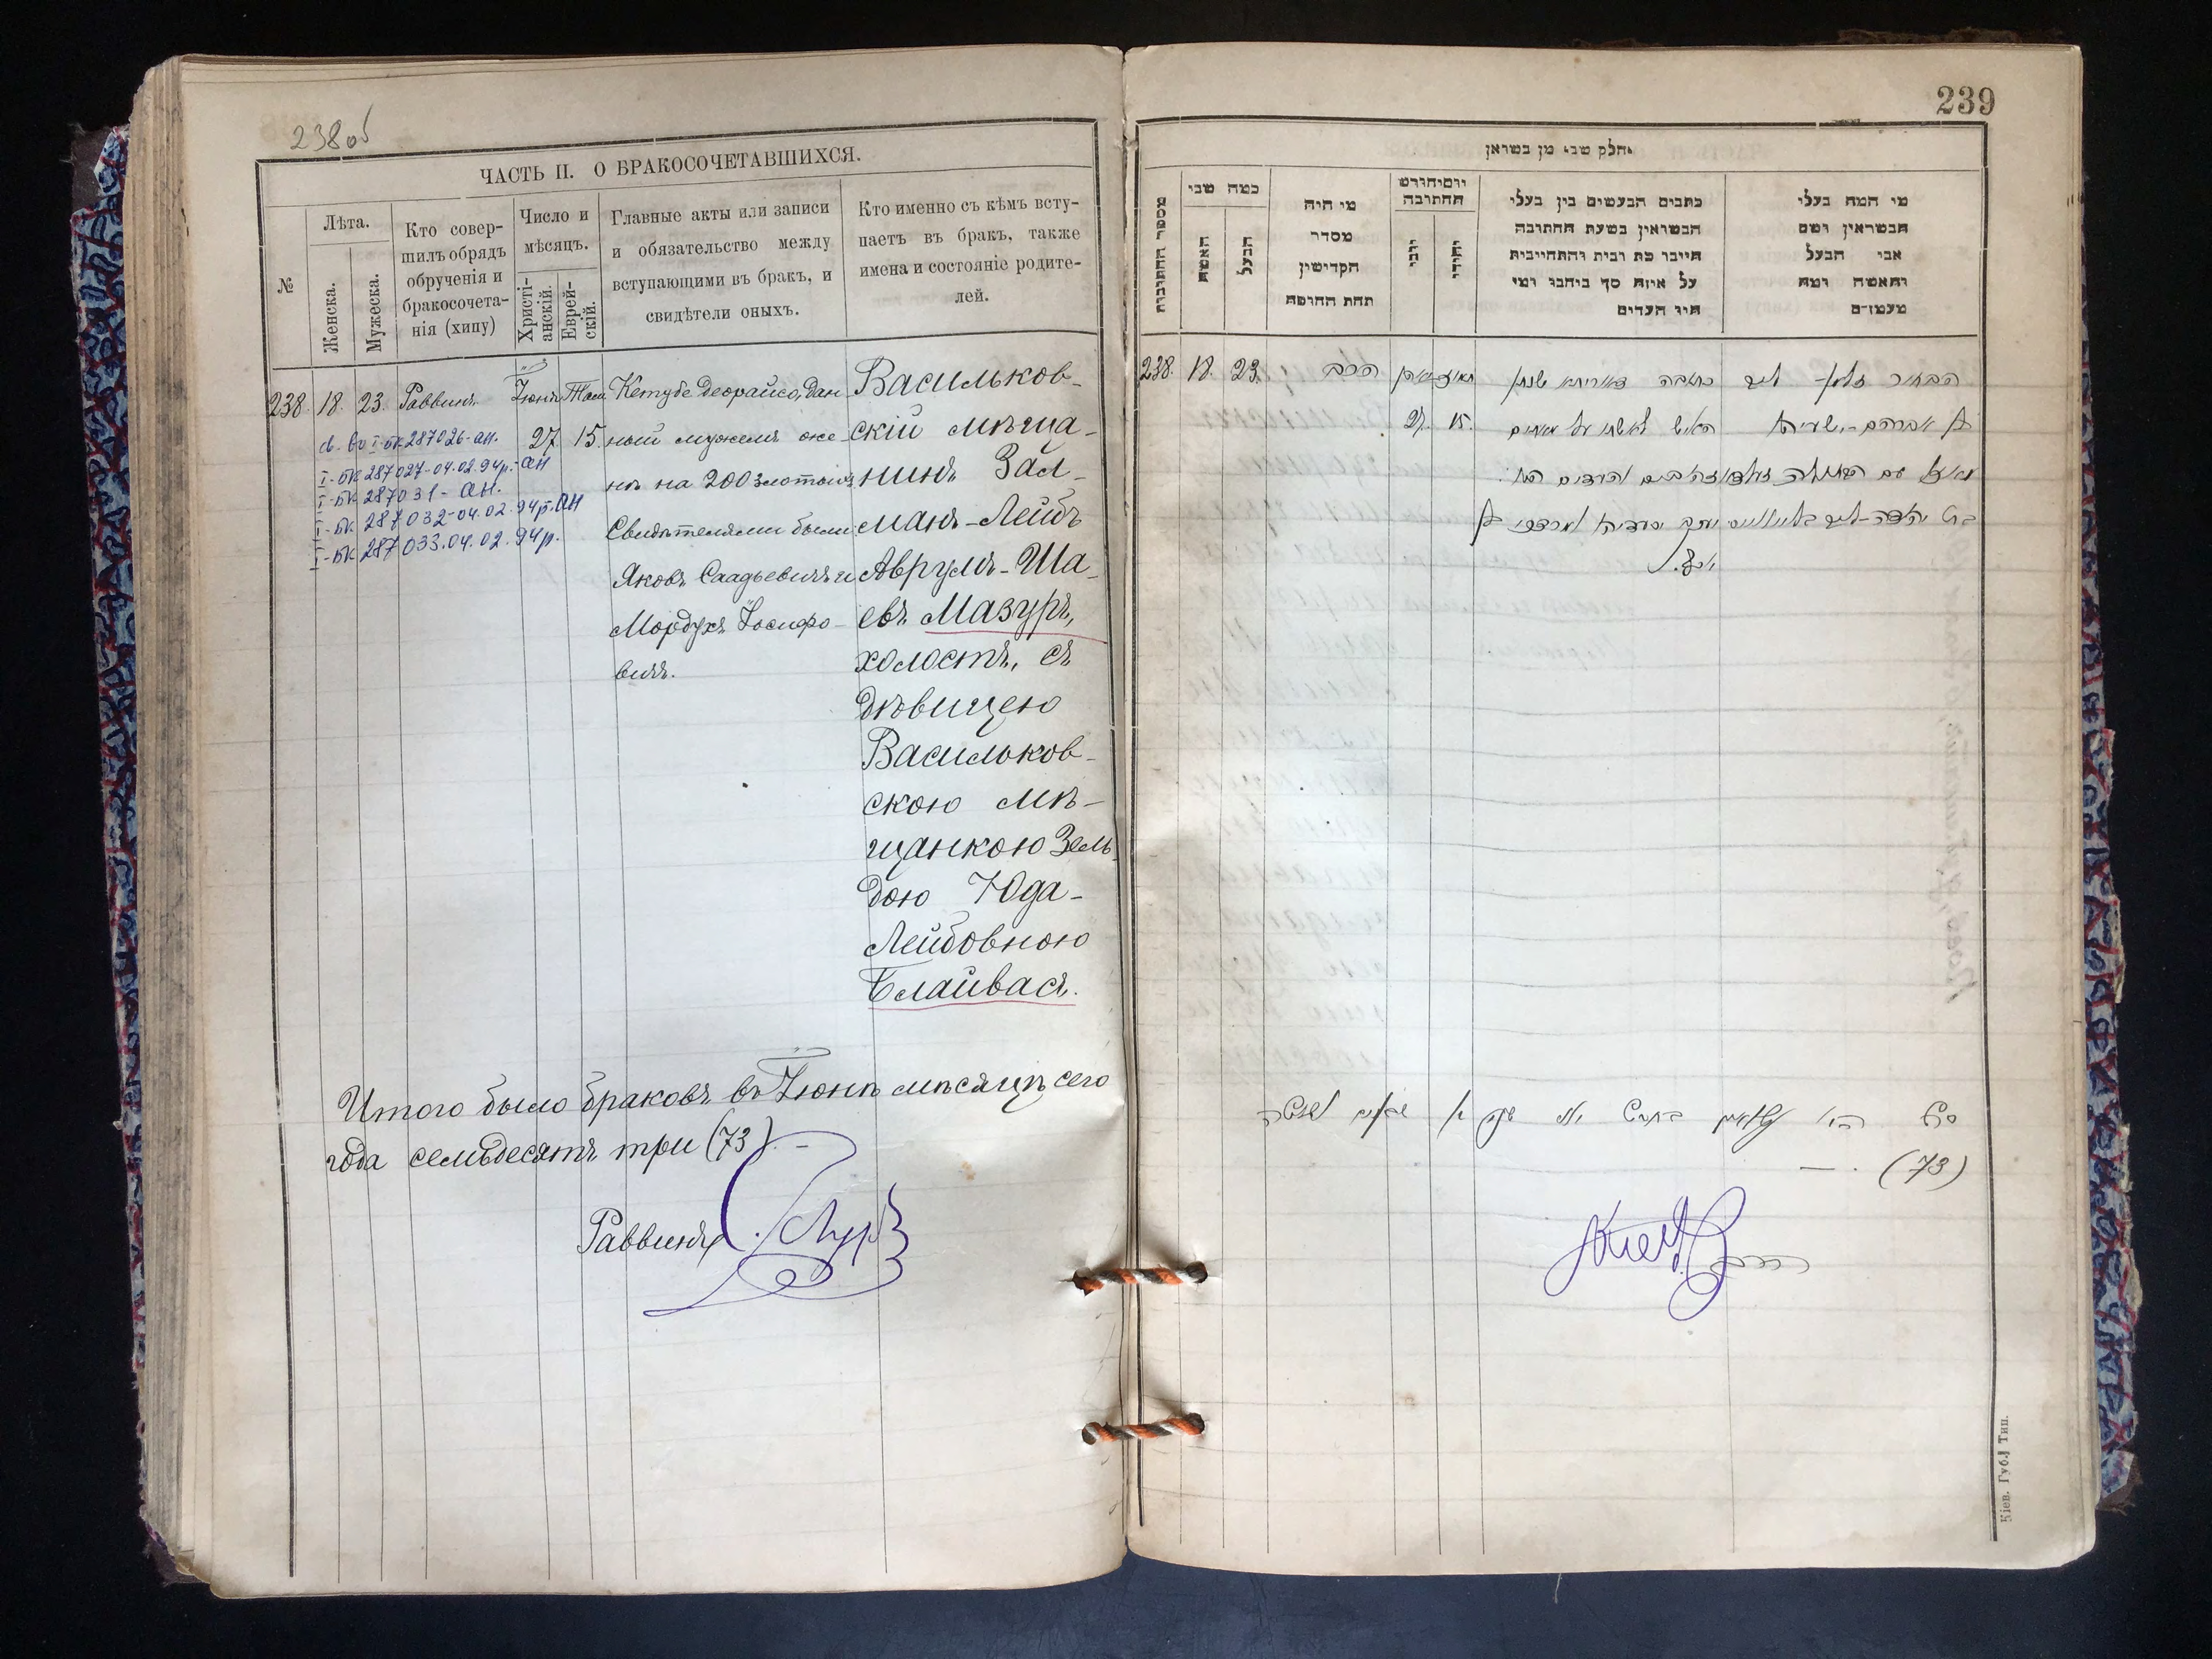 238об
ЧАСТЬ II. О БРАКОСОЧЕТАВШИХСЯ.
№
Лѣта.
Женска.
Мужеска.
Кто совер-
шилъ обрядъ
обрученія и
бракосочета-
нія (хипу)
Число и
мѣсяцъ.
Христі-
анскій.
Еврей-
скій.
Главные акты или записи
и обязательство между
вступающими въ бракъ, и
свидѣтели оныхъ.
Кто именно съ кѣмъ всту-
паетъ въ бракъ, также
имена и состояніе родите-
лей.
238. 18. 23. Раввинъ Іюня Там.
27 15.
Кетубе деорайсо, дан-
ный мужемъ же-
нѣ на 200 злотыхъ
Свидѣтелями были
Яковъ Саадьевичъ и
Мордухъ Іосифо-
вичъ.
Васильков-
скій мѣща-
нинъ Зал-
манъ-Лейбъ
Аврумъ-Ша-
евъ Мазуръ,
холостъ, съ
дѣвицею
Васильков-
скою мѣ-
щанкою Зель-
дою Юда-
Лейбовною
Блайвасъ.
св. во I-БК 287026-ан.
I-БК 287027-04.02.94р.-ан
I-БК 287031-ан.
I-БК 287032-04.02.94р.-ан
I-БК 287033.04.02.94р.
Итого было браковъ въ Іюнѣ мѣсяцѣ сего
года семьдесятъ три (73)
Раввинъ
239
חלק שני מן נשואן
מספר החתונות
כמה שני
האשה
הבעל
מי היה
מסדר
הקדישין
תחת החופה
יום וחודש
החתונה
נוצרי
יהודי
כתבים הנעשים בין בעלי
הנשואין בשעת החתונה
על איזה סך ניתנו ומי
היו העדים
מי המה בעלי
הנשואין ושם
אבי הבעל
והאשה ומה
מעמדם
238. 18. 23. הרב
27. 15.
הבחור זלמן- ליב
כתובה דאורייתא שנתן
האיש לאשתו על מאתים
(73)
הרב
Кіев. Губ. Тип.